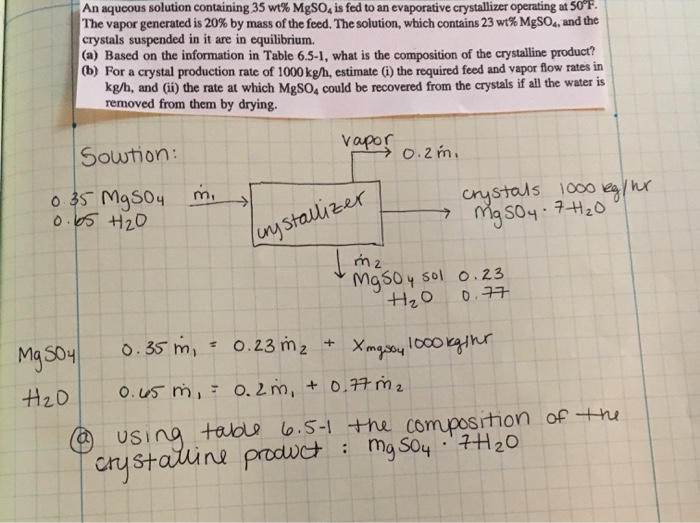 An aqueous solution containing 35 wt% MgSO₄ is fed to an evaporative crystallizer operating at 50°F.
The vapor generated is 20% by mass of the feed. The solution, which contains 23 wt% MgSO₄, and the
crystals suspended in it are in equilibrium.
(a) Based on the information in Table 6.5-1, what is the composition of the crystalline product?
(b) For a crystal production rate of 1000 kg/h, estimate (i) the required feed and vapor flow rates in
kg/h, and (ii) the rate at which MgSO₄ could be recovered from the crystals if all the water is
removed from them by drying.
Solution:
vapor
0.2 ṁ₁
0.35 MgSO₄
0.65 H₂O
ṁ₁
crystallizer
crystals 1000 kg/hr
MgSO₄ · 7H₂O
ṁ₂
MgSO₄ sol 0.23
H₂O 0.77
MgSO₄ 0.35 ṁ₁ = 0.23 ṁ₂ + XMgSO₄ 1000 kg/hr
H₂O 0.65 ṁ₁ = 0.2 ṁ₁ + 0.77 ṁ₂
(a) using table 6.5-1 the composition of the
crystalline product : MgSO₄ · 7H₂O